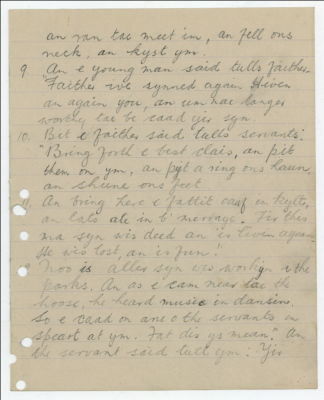 an ran tae meet im, an fell ons
neck, an kyst ym.
9 An e young man said tulls faither.
"Faither ive synned again Hiven
an again you, an um nae langer
worthy tae be caad yer syn.
10. Bit e faither said tulls servants.
"Bring forth e best clais, an pit
them on ym, an pit a ring ons haun,
an sheune ons feet
11. An bring here e fattit cauf an kyllt,
an lats ate in b' merry. Fir this
ma syn wis deed an is liven again
He wis lost, an is fun."
Noo is aller syn wis workin i the
parks. An as e cam near tae the
hoose, he heard music in dansin.
So e caad on ane o the servants in
speart at ym. Fat dis ys mean". An
the servant said tull ym. Yer